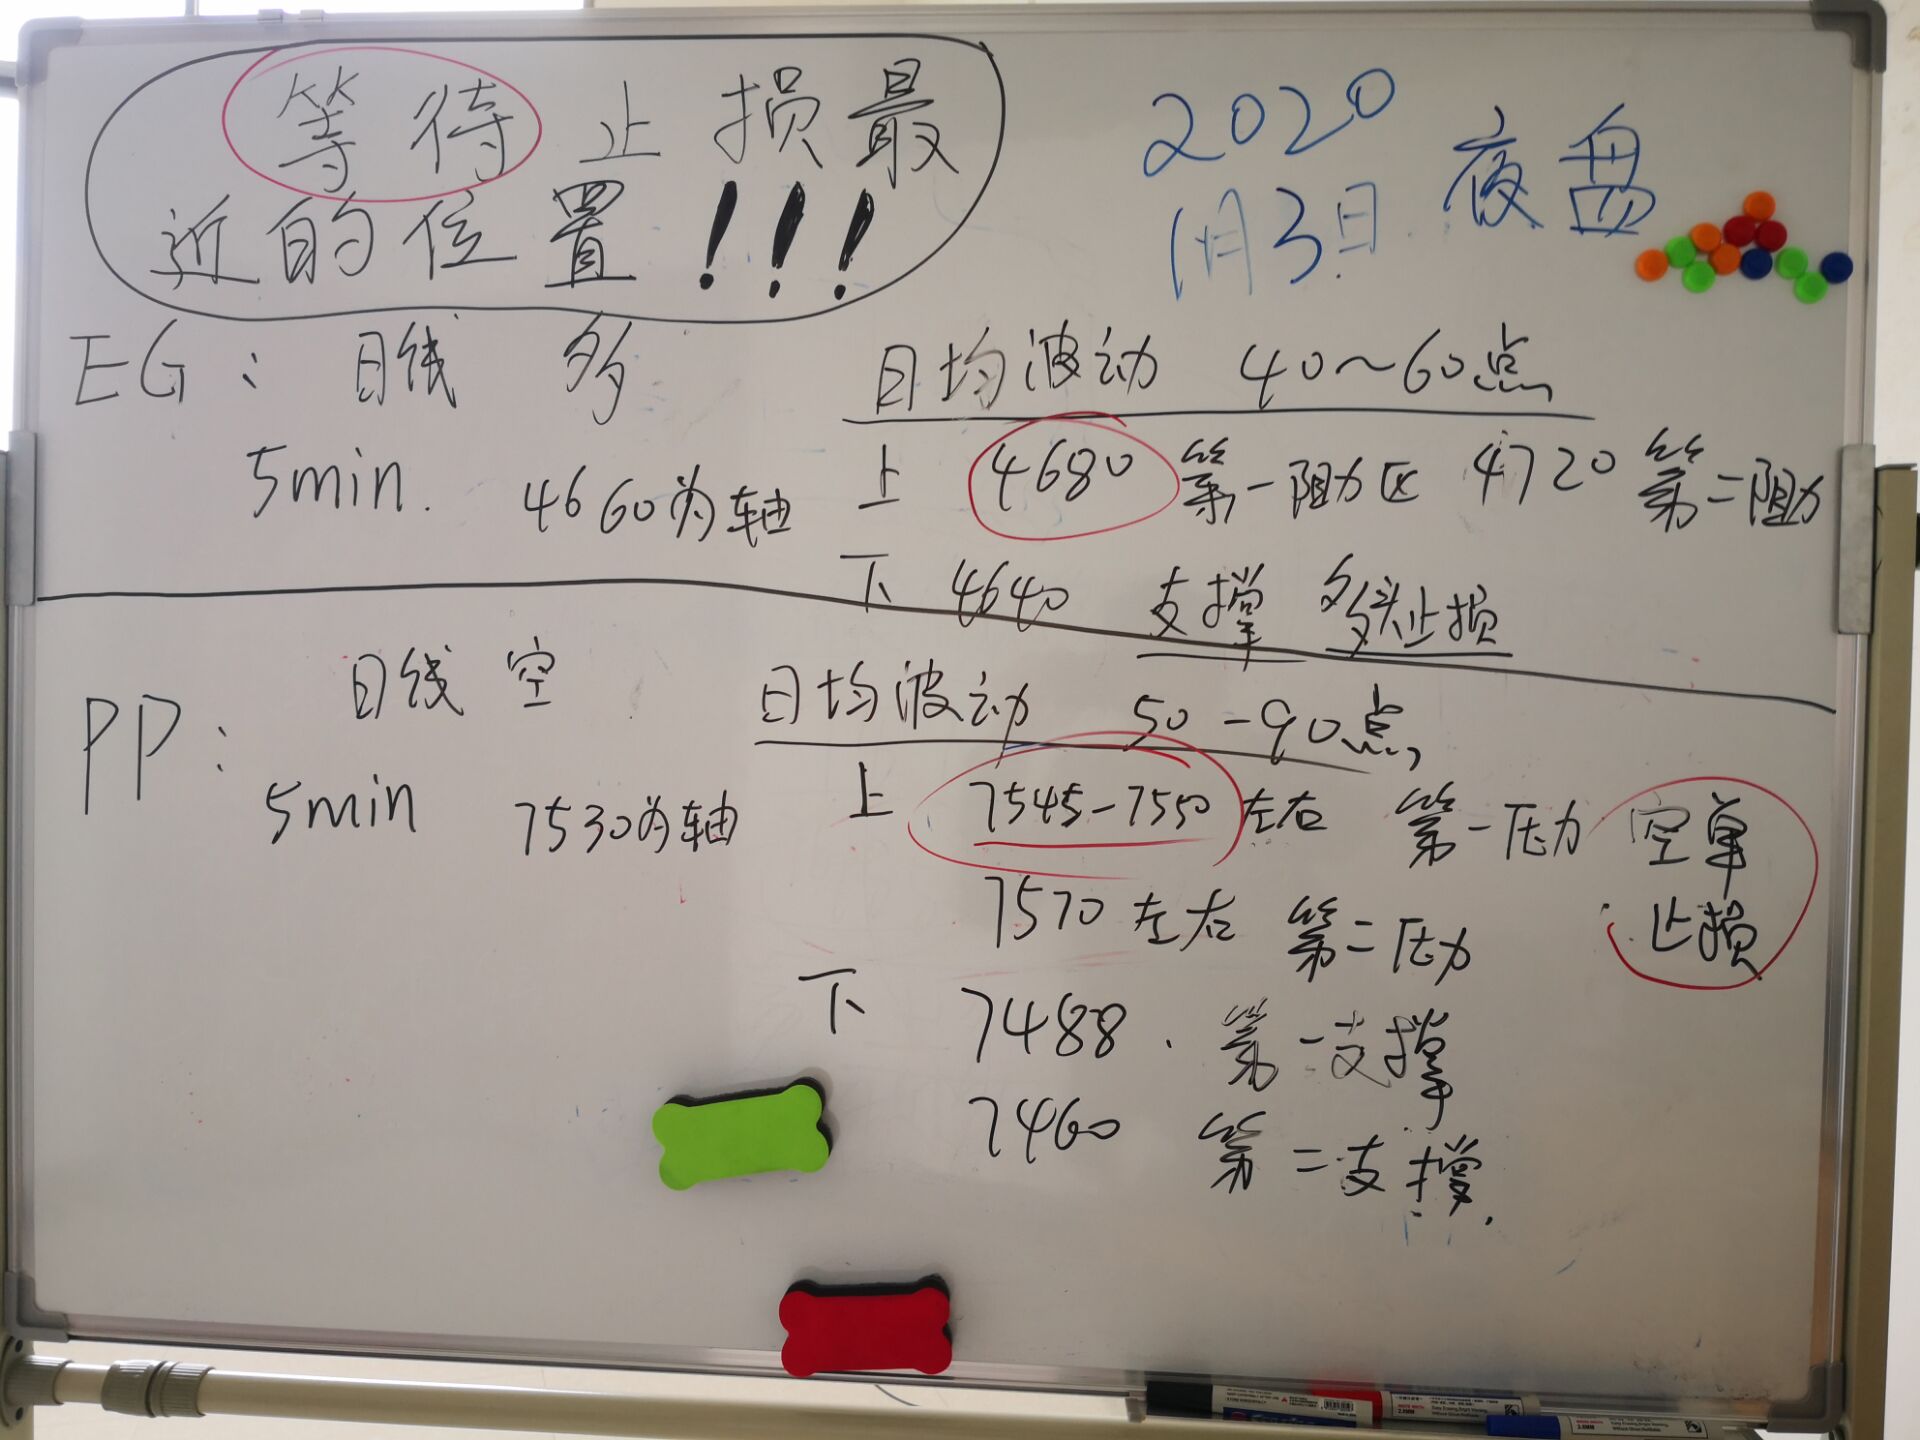 等待止损最
近的位置!!!
2020
1月3日 夜盘
EG: 日线 多
日均波动 40~60点
5min. 4660为轴
上 4680 第一阻力区 4720 第二阻力
下 4640 支撑 多头止损
PP: 日线 空
日均波动 50-90点
5min 7530为轴
上 7545-7550左右 第一压力 空单
止损
7570左右 第二压力
下 7488. 第一支撑
7460 第二支撑.